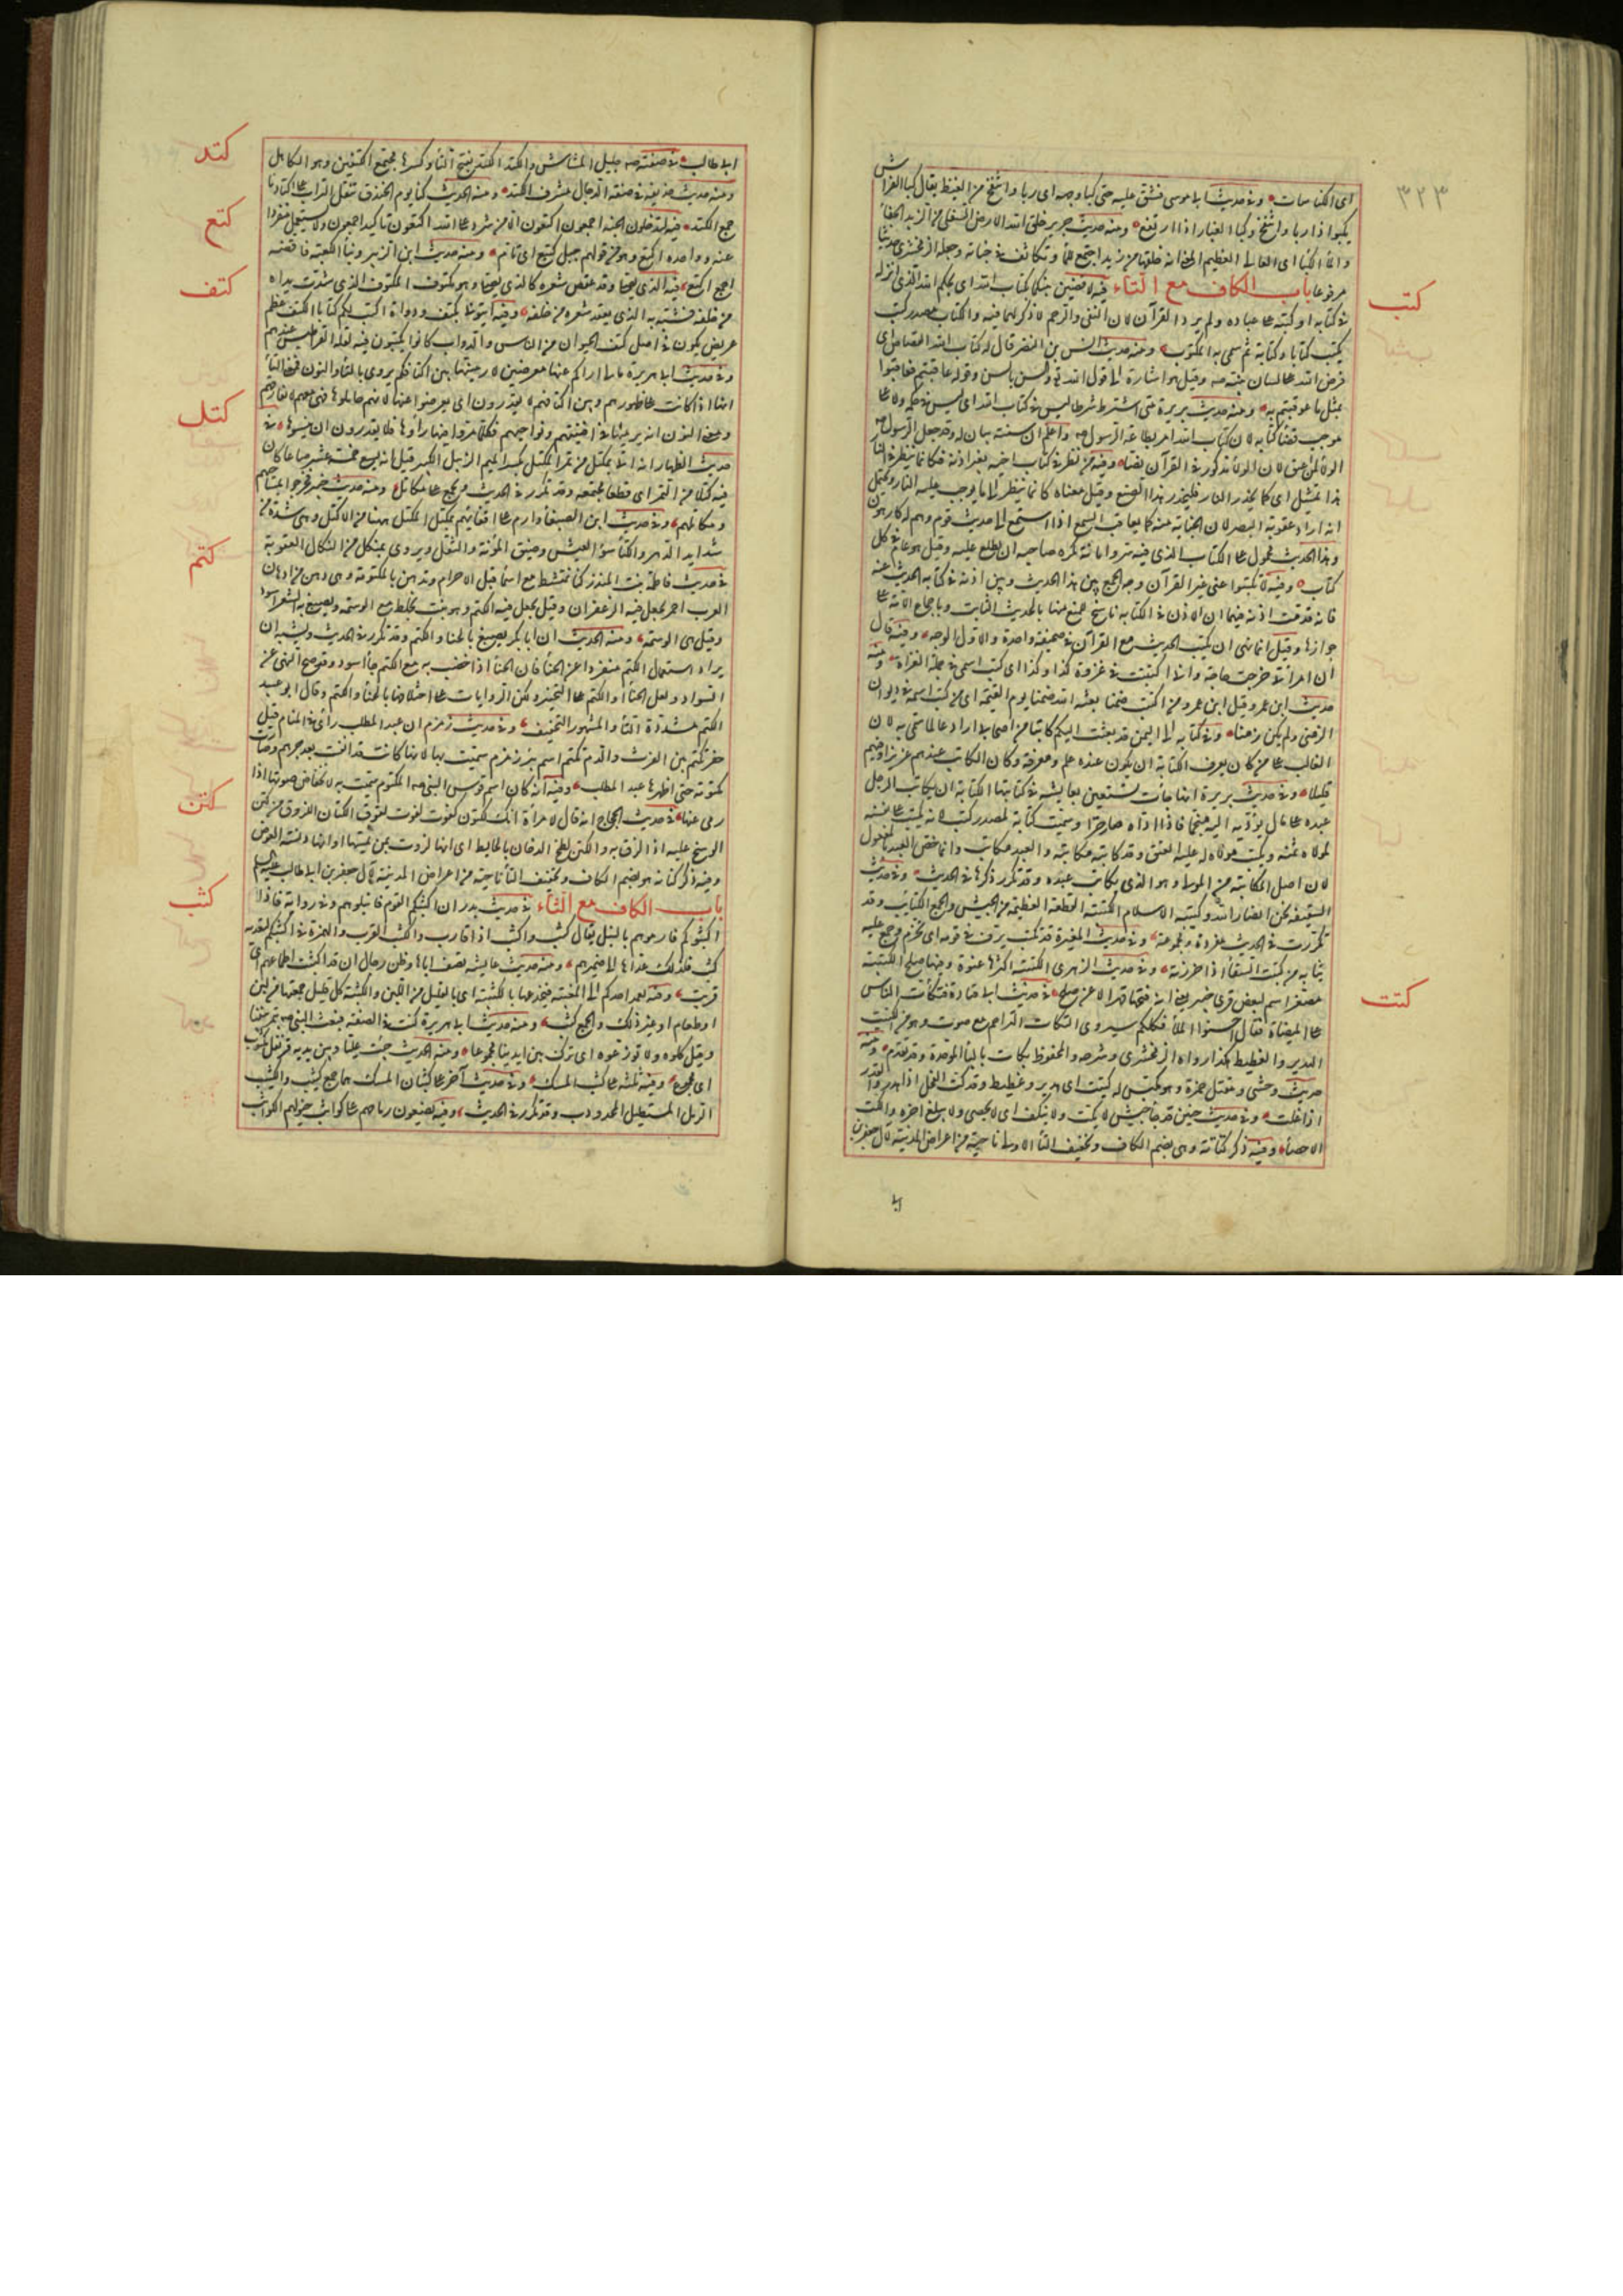 ٣٢٣
اى الكناسات وفى حديث ابى موسى فشق عليه حتى كبا وجهه اى ربا وانتفخ من الغيظ يقال كبا الفرس
يكبوا اذا ربا وانتفخ وكبا الغبار اذا ارتفع ومنه حديث جرير خلق الله الارض السفلى من الزبد الجفاء
والماء الكباء اى العالى العظيم المعنى انه خلقها من زبد اجتمع للماء وتكاثف فى جنباته وجعله الزمخشرى حديثا
مرفوعا باب الكاف مع التاء فيه لاقضين بينكما بكتاب الله اى بحكم الله الذى انزله
كتب
فى كتابه او كتبه على عباده ولم يرد القرآن لان النفى والرجم لا ذكر لهما فيه والكتاب مصدر كتب
يكتب كتابا وكتابة ثم سمى به المكتوب ومنه حديث انس بن النضر قال له كتاب الله القصاص اى
فرض الله على لسان نبيه وقيل هو اشارة الى قول الله تعالى والسن بالسن وقوله وان عاقبتم فعاقبوا
بمثل ما عوقبتم به ومنه حديث بريرة من اشترط شرطا ليس فى كتاب الله اى ليس فى حكمه ولا على
موجب قضاء كتابه لان كتاب الله امر بطاعة الرسول واعلم ان سنته بيان له وقد جعل الرسول
الولاء لمن اعتق لا ان الولاء مذكور فى القرآن نصا وفيه من نظر فى كتاب اخيه بغير اذنه فكانما ينظر فى النار
هذا تمثيل اى كما يحذر النار فليحذر هذا الصنيع وقيل معناه كانما ينظر الى ما يوجب عليه النار ويحتمل
انه اراد عقوبة البصر لان الجناية منه كما يعاقب السمع اذا استمع الى حديث قوم وهم له كارهون
وهذا الحديث محمول على الكتاب الذى فيه سر وامانة يكره صاحبه ان يطلع عليه وقيل هو عام فى كل
كتاب وفيه لا تكتبوا عنى غير القرآن وجه الجمع بين هذا الحديث وبين اذنه فى كتابة الحديث عنه
فانه قد ثبت اذنه فيها ان الاذن فى الكتابة ناسخ للمنع منها بالحديث الثابت وباجماع الامة على
جوازها وقيل انما نهى ان يكتب الحديث مع القرآن فى صحيفة واحدة والاول الوجه وفيه قال
ان امرأتى خرجت حاجة وانى اكتتبت فى غزوة كذا وكذا اى كتب اسمى فى جملة الغزاة ومنه
حديث ابن عمر وقيل ابن عمرو من اكتتب ضمنا بعثه الله ضمنا يوم القيمة اى من كتب اسمه فى ديوان
الزمنى ولم يكن زمنا وفى كتابه الى اليمن قد بعثت اليكم كاتبا من اصحابى اراد عالما سمى به لان
الغالب على من كان يعرف الكتابة ان يكون عنده علم ومعرفة وكان الكاتب عندهم عزيزا وفيهم
قليلا وفى حديث بريرة انها جاءت تستعين بعايشة فى كتابتها الكتابة ان يكاتب الرجل
عبده على مال يؤديه اليه منجما فاذا اداه صار حرا وسميت كتابة لمصدر كتب لانه يكتب على نفسه
لمولاه ثمنه ويكتب مولاه له عليه العتق وقد كاتبه مكاتبة والعبد مكاتب وانما خص العبد بالمفعول
لان اصل المكاتبة من المولى وهو الذى يكاتب عبده وقد تكرر ذكرها فى الحديث وفى حديث
السقيفة نحن انصار الله وكتيبة الاسلام الكتيبة القطعة العظيمة من الجيش والجمع الكتايب وقد
تكررت فى الحديث مفردة ومجموعة وفى حديث المغيرة قد تكتب يزف فى قومه اى تحزم وجمع عليه
ثيابه من كتبت السقاء اذا خرزته وفى حديث الزهرى الكتيبة اكثرها عنوة وفيها صلح الكتيبة
مصغر اسم لبعض قرى خيبر يعنى انه فتحها قهرا لا عن صلح فى حديث ابى قتادة فتكات الناس
كتت
على الميضاة فقال احسنوا الملأ فكلكم سيروى التكات التزاحم مع صوت وهو من الكتيت
الهدير والغطيط هكذا رواه الزمخشرى وشرحه والمحفوظ تكاب بالباء الموحدة وقد تقدم ومنه
حديث وحشى ومقتل حمزة وهو مكبس له كتيت اى هدير وغطيط وقد كت الفحل اذا هدر والقدر
اذا غلت وفى حديث حنين قد جاء جيش لا يكت ولا ينكف اى لا يحصى ولا يبلغ اخره والكت
الاحصاء وفيه ذكر كتاتة وهى بضم الكاف وتخفيف التاء الاولى ناحية من اعراض المدينة لآل جعفر بن
ابى
ابى طالب فى صفته جليل المشاش والكتد الكتد بفتح التاء وكسرها مجتمع الكتفين وهو الكاهل
كتد
ومنه حديث حذيفة فى صفة الدجال مشرف الكتد ومنه الحديث كنا يوم الخندق ننقل التراب على اكتادنا
جمع الكتد فيه لتدخلون الجنة اجمعون اكتعون الا من شرد على الله اكتعون تاكيد اجمعون ولا يستعمل مفردا
كتع
عنه وواحده اكتع وهو من قولهم جبل كتيع اى تام ومنه حديث ابن الزبير وبناء الكعبة فاقضه
اجمع اكتع فيه الذى يصلى وقد عقص شعره كالذى يصلى وهو مكتوف المكتوف الذى شدت يداه
كتف
من خلفه فشبه به الذى يعقد شعره من خلفه وفيه ايتونى بكتف ودواة اكتب لكم كتابا الكتف عظم
عريض يكون فى اصل كتف الحيوان من الناس والدواب كانوا يكتبون فيه لقلة القراطيس عندهم
وفى حديث ابى هريرة مالى اراكم عنها معرضين لارمينها بين اكتافكم يروى بالتاء والنون فمعنى التاء
انها اذا كانت على ظهورهم وبين اكتافهم لا يقدرون ان يعرضوا عنها لانهم حاملوها فهى معهم لا تفارقهم
ومعنى النون انه يرميها فى افنيتهم ونواحيهم فكلما مروا فيها رأوها فلا يقدرون ان ينسوها فى
كتل
حديث الظهار انه اتى بمكتل من تمر المكتل بكسر الميم الزبيل الكبير قيل انه يسع خمسة عشر صاعا كان
فيه كتلا من التمر اى قطعا مجتمعة وقد تكرر فى الحديث ويجمع على مكاتل ومنه حديث خيبر فخرجوا بمساحيهم
ومكاتلهم وفى حديث ابن الصبغاء وارم على اقفائهم بمكتل المكتل ههنا من الاكتل وهى شدة من
شدايد الدهر والكتال سوء العيش وضيق المؤنة والثقل ويروى بمنكل من النكال العقوبة
فى حديث فاطمة بنت المنذر كنا نمتشط مع اسماء قبل الاحرام وندهن بالمكتومة وهى دهن من ادهان
كتم
العرب احمر يجعل فيه الزعفران وقيل يجعل فيه الكتم وهو نبت يخلط مع الوسمة ويصبغ به الشعر اسود
وقيل هى الوسمة ومنه الحديث ان ابا بكر يصبغ بالحناء والكتم وقد تكرر فى الحديث ويشبه ان
يراد استعمال الكتم منفردا عن الحناء فان الحناء اذا خضب به مع الكتم جاء اسود وقد صح النهى عن
السواد ولعل الحناء او الكتم على التخيير ولكن الروايات على اختلافها بالحناء والكتم وقال ابو عبيد
الكتم مشددة التاء والمشهور التخفيف وفى حديث زمزم ان عبد المطلب رأى فى المنام قيل
حفر تكتم بين الفرث والدم تكتم اسم بئر زمزم سميت بها لانها كانت قد اندفنت بعد جرهم وصارت
مكتومة حتى اظهرها عبد المطلب وفيه انه كان اسم قوس النبى المكتوم سميت به لانخفاض صوتها اذا
رمى عنها فى حديث الحجاج انه قال لامرأة انك لكتون لفوت لقوف الكتون اللزوق من كتن
كتن
الوسخ عليه اذا لزق به والكتن لطخ الدخان بالحايط اى انها لزوت بمن يمسها او انها دنسة العرض
وفيه ذكر كتانة هو بضم الكاف وتخفيف التاء ناحية من اعراض المدينة لآل جعفر بن ابى طالب
باب الكاف مع الثاء فى حديث بدر ان اكثبكم القوم فانبلوهم وفى رواية فاذا
كثب
اكثبوكم فارموهم بالنبل يقال كثب واكثب اذا قارب والكثب القرب والهمزة فى اكثبكم لتعدية
كثب فلذلك عداها الى ضميرهم ومنه حديث عايشة تصف اباها وظن رجال ان قد اكثبت اطماعهم اى
قربت وفيه يعمد احدكم الى المغيبة فيخدعها بالكثبة اى بالقليل من اللبن والكثبة كل قليل جمعته من لبن
او طعام او غير ذلك والجمع كثب ومنه حديث ابى هريرة كنت فى الصفة فبعث النبى بتمر بيننا
وقيل كلوه ولا توزعوه اى ترك بين ايدينا مجموعا ومنه الحديث جئت عليا وبين يديه قرنفل مكثوب
اى مجموع وفيه ثلثة على كثب المسك وفى حديث آخر على كثبان المسك هما جمع كثيب والكثيب
الرمل المستطيل المحدودب وقد تكرر فى الحديث وفيه يضعون رماحهم على كواثب خيولهم الكواثب